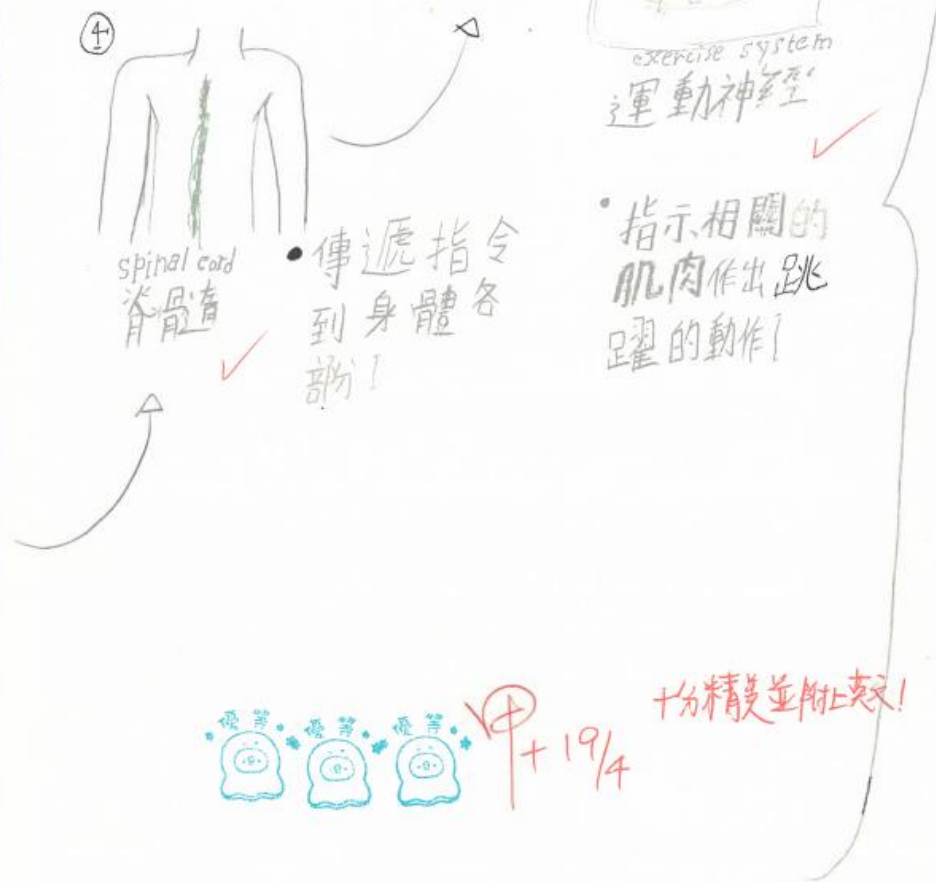 ④
spinal cord
脊髓
傳遞指令
到身體各
部份！
exercise system
運動神經
指示相關的
肌肉作出跳
躍的動作！
優等
優等
優等
甲+ 19/4
十分精美並附上英文！